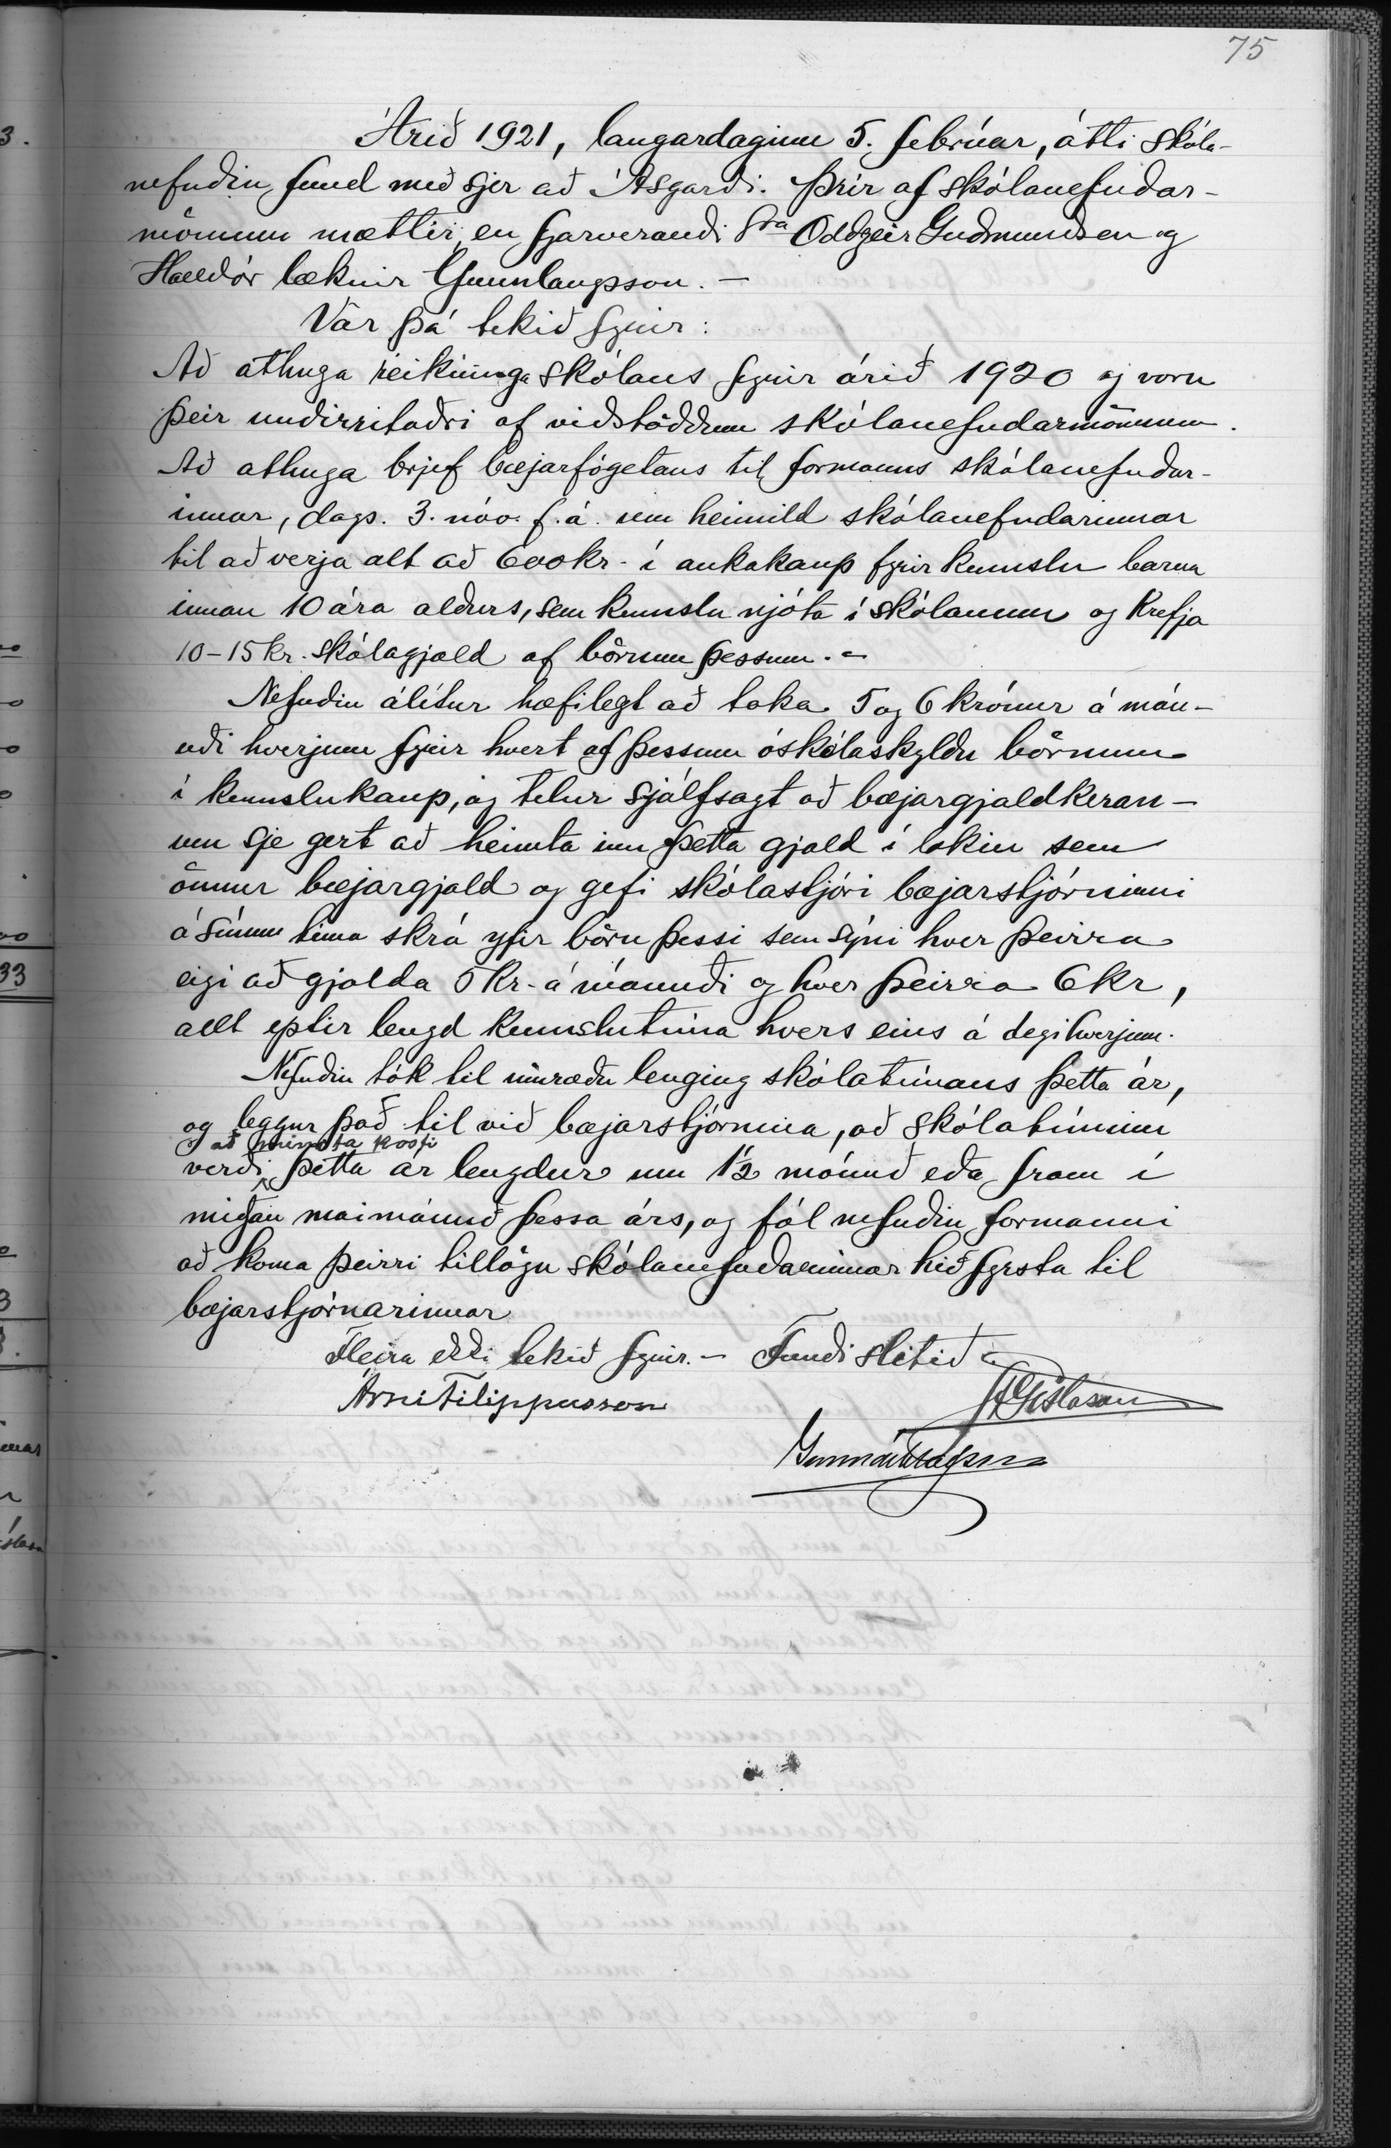 75
Árið 1921, laugardaginn 5. febrúar, átti skóla-
nefndin fund með sjer að Ásgarði. Þrír af skólanefndar-
mönnum mættir, en fjarverandi sra Oddgeir Guðmundsen og
Halldór læknir Gunnlaugsson. -
Var þá tekið fyrir:
Að athuga reikninga skólans fyrir árið 1920 og voru
þeir undirritaðri af viðstöddum skólanefndarmönnum.
Að athuga brjef bæjarfógetans til formanns skólanefndar-
innar, dags. 3. nóv. f. á. um heimild skólanefndarinnar
til að verja alt að 600 kr. í aukakaup fyrir kennslu barna
innan 10 ára aldurs, sem kennslu njóta í skólanum og krefja
10-15 kr. skólagjald af börnum þessum. -
Nefndin álítur hæfilegt að taka 5 og 6 krónur á mán-
uði hverjum fyrir hvert af þessum óskólaskyldu börnum
í kennslukaup, og telur sjálfsagt að bæjargjaldkeran-
um sje gert að heimta inn þetta gjald í lokin sem
önnur bæjargjald og gefi skólastjóri bæjarstjórninni
á sínum tíma skrá yfir börn þessi sem sýni hver þeirra
eigi að gjalda 5 kr. á mánuði og hver þeirra 6 kr,
allt eptir lengd kennslutíma hvers eins á degi hverjum.
Nefndin tók til umræðu lenging skólatímans þetta ár,
og leggur það til við bæjarstjórnina, að skólatíminn
að minsta kosti
verði þetta ár lengdur um 1½ mánuð eða fram í
miðjan maimánuð þessa árs, og fól nefndin formanni
að koma þeirri tillögu skólanefndarinnar hið fyrsta til
bæjarstjórnarinnar
Fleira ekki tekið fyrir. - Fundi slitið
Árni Filippusson
Gíslason
Gunnar Ólafsson